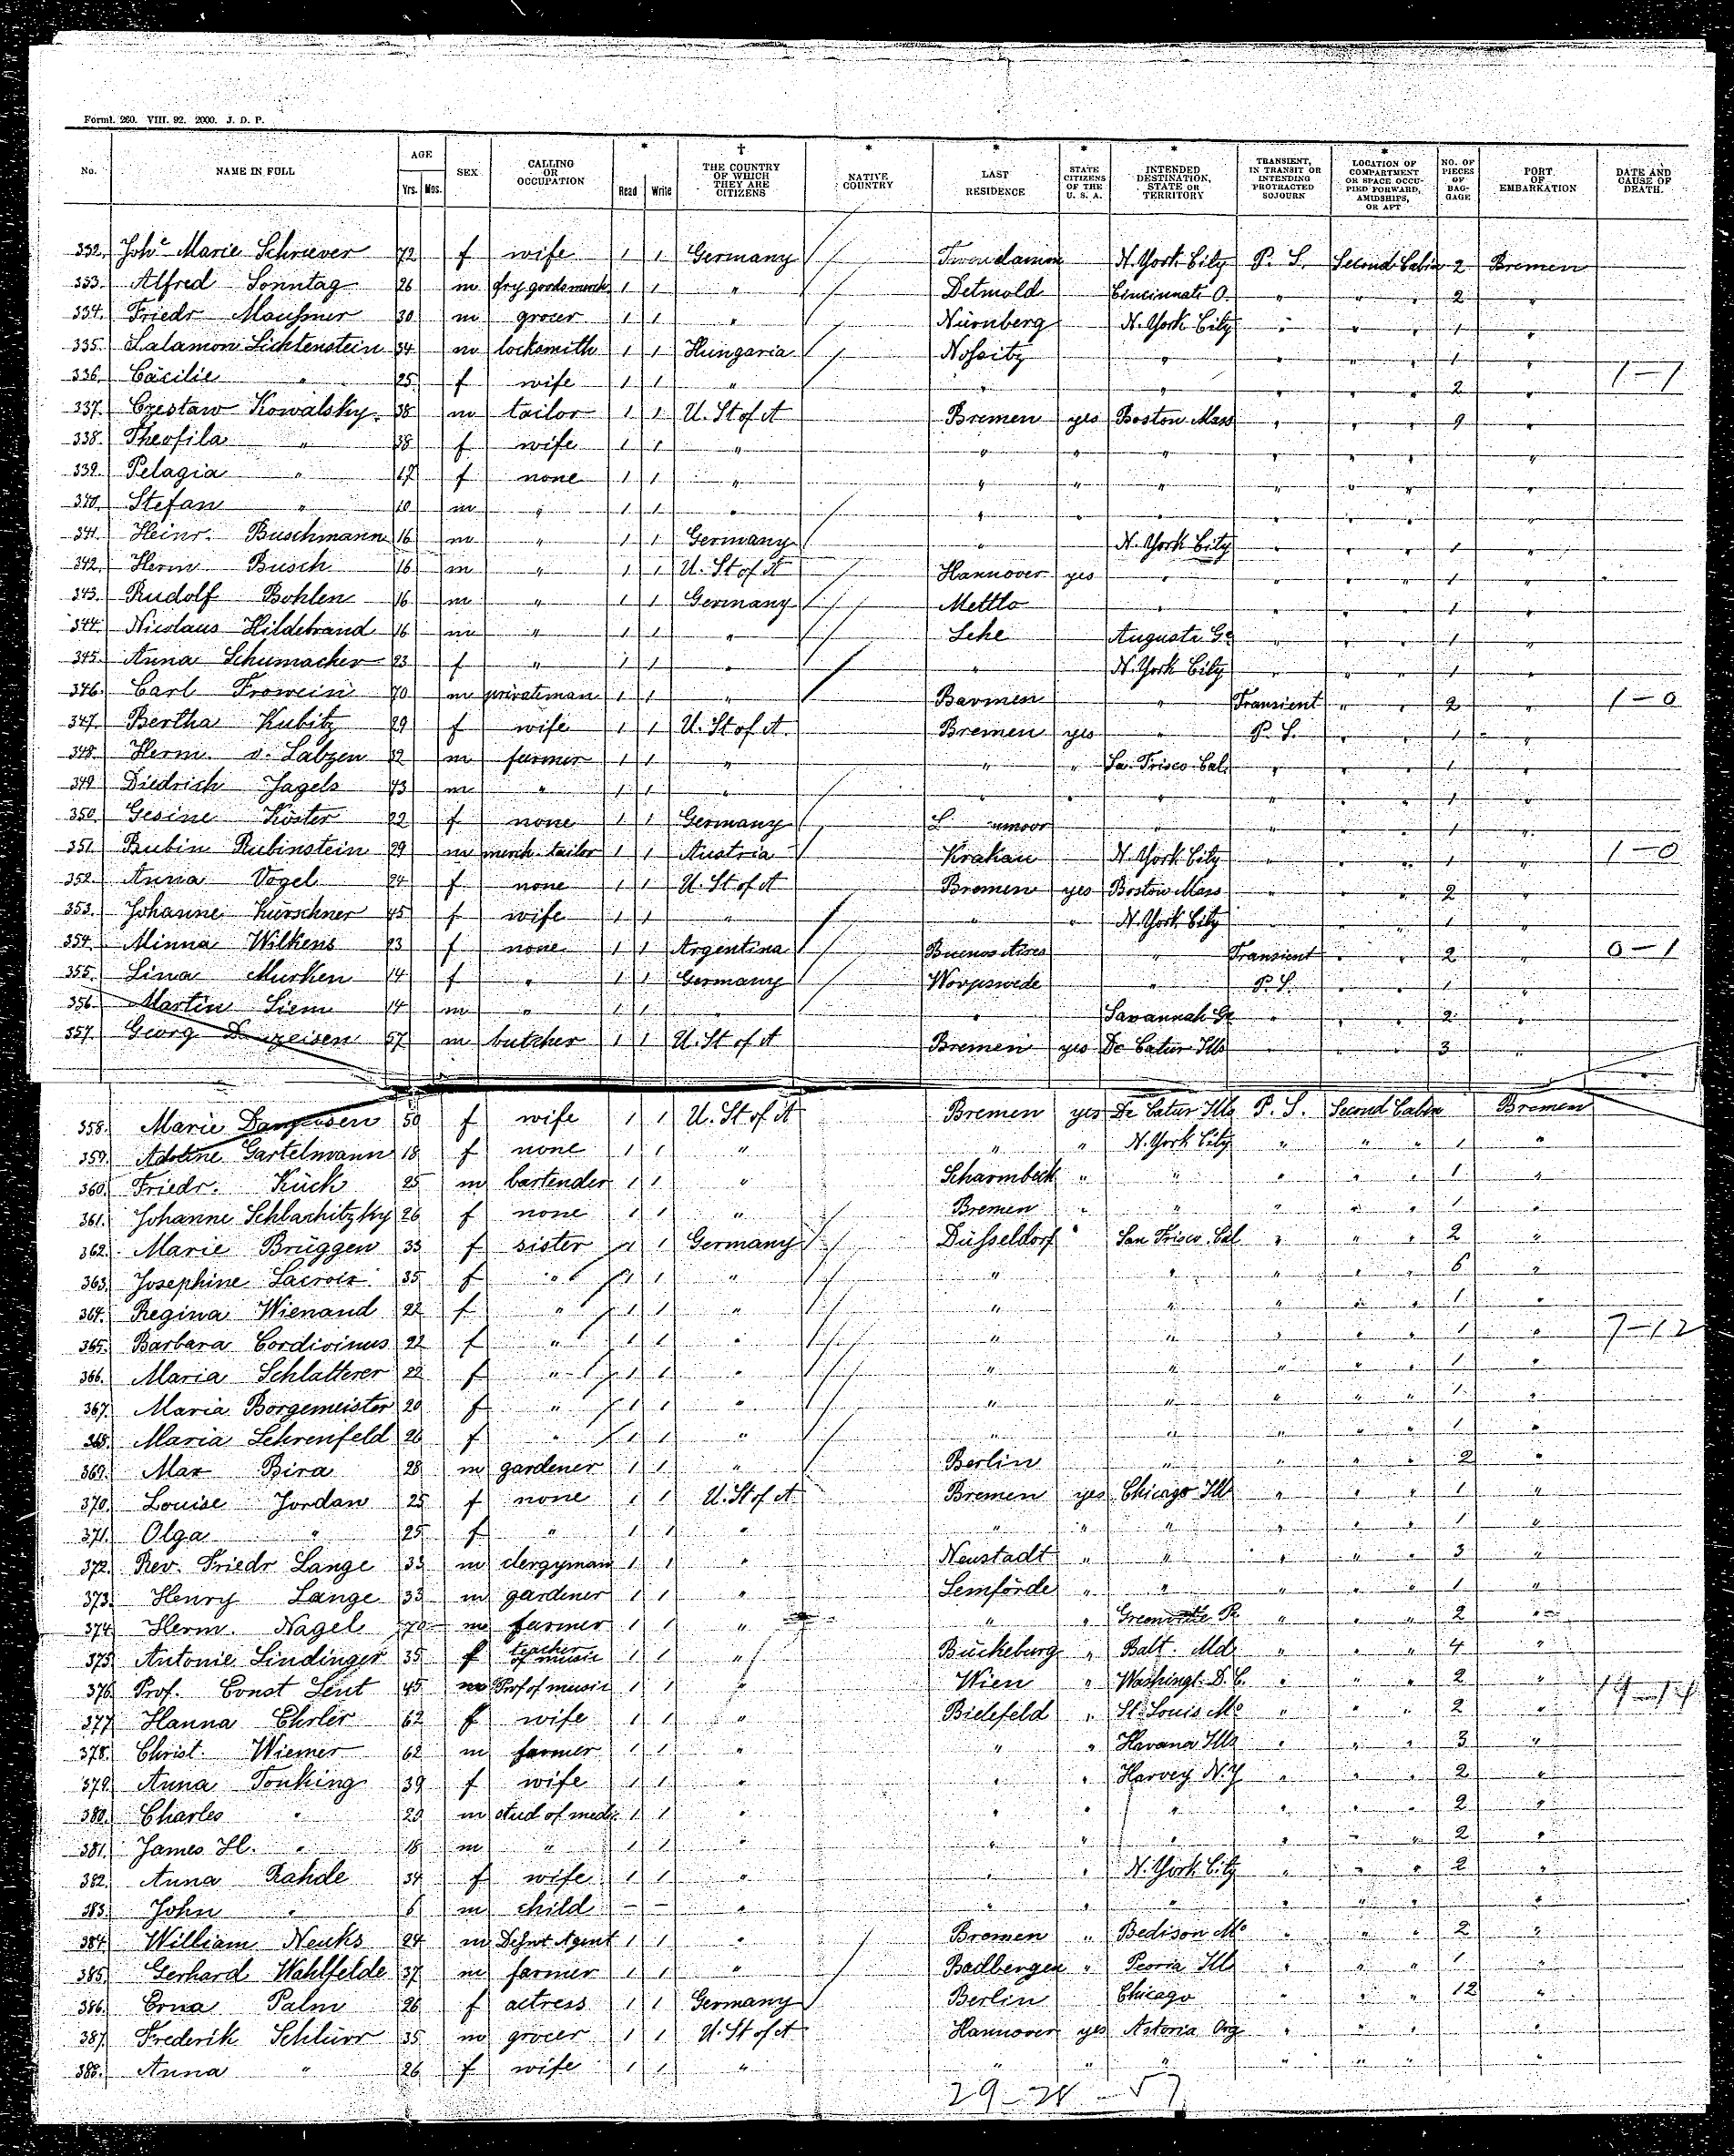 Forml. 260. VIII. 92. 2000. J. D. P.
No. NAME IN FULL AGE Yrs. Mos. SEX CALLING OR OCCUPATION * Read Write † THE COUNTRY OF WHICH THEY ARE CITIZENS * NATIVE COUNTRY * LAST RESIDENCE * STATE CITIZENS OF THE U. S. A. * INTENDED DESTINATION, STATE OR TERRITORY TRANSIENT, IN TRANSIT OR INTENDING PROTRACTED SOJOURN * LOCATION OF COMPARTMENT OR SPACE OCCUPIED FORWARD, AMIDSHIPS, OR AFT NO. OF PIECES OF BAGGAGE PORT OF EMBARKATION DATE AND CAUSE OF DEATH.
332. Johe Marie Schriever 72 f wife 1 1 Germany N. York City P. S. Second Cabin 2 Bremen
333. Alfred Sonntag 26 m dry goods merch 1 1 " Detmold Cincinnati O. " " " 2 "
334. Friedr Maußner 30 m grocer 1 1 " Nürnberg N. York City " " " 1 "
335. Salamon Lichtenstein 34 m locksmith 1 1 Hungaria " " " " 1 "
336. Cäcilie " 25 f wife 1 1 " " " " " " 2 " 1-1
337. Czestaw Kowalsky. 38 m tailor 1 1 U. St of A Bremen yes Boston Mass " " " 9 "
338. Theofila " 38 f wife 1 1 " " " " " " " "
339. Pelagia " 17 f none 1 1 " " " " " " " "
340. Stefan " 10 m " 1 1 " " " " " " " "
341. Heinr. Buschmann 16 m " 1 1 Germany " N. York City " " " 1 "
342. Herm Busch 16 m " 1 1 U. St of A Hannover yes " " " " 1 "
343. Rudolf Bohlen 16 m " 1 1 Germany " " " " 1 "
344. Nicolaus Hildebrand 16 m " 1 1 " Lehe Augusta Ga " " " 1 "
345. Anna Schumacher 23 f " 1 1 " " N. York City " " " 1 "
346. Carl Frowein 70 m privateman 1 1 " Barmen " Transient " " 2 " 1-0
347. Bertha Kubitz 29 f wife 1 1 U. St of A. Bremen yes " P. S. " " 1 "
348. Herm. v. Labzen 32 m farmer 1 1 " " " Sa. Frisco Cal. " " " 1 "
349. Diedrich Jagels 43 m " 1 1 " " " " " " 1 "
350. Gesine Köster 22 f none 1 1 Germany " " " " 1 "
351. Rubin Rubinstein 29 m merch. tailor 1 1 Austria Krakau N. York City " " " 1 " 1-0
352. Anna Vogel 24 f none 1 1 U. St of A Bremen yes Boston Mass " " " 2 "
353. Johanne Kürschner 45 f wife 1 1 " " " N. York City " " " 1 "
354. Minna Wilkens 23 f none 1 1 Argentina Buenos Aires " Transient " " 2 " 0-1
355. Lina Murken 14 f " 1 1 Germany Worpswede " P. S. " " 1 "
356. Martin Siem 14 m " 1 1 " " Savannah Ga " " " 2 "
357. Georg 57 m butcher 1 1 U. St of A Bremen yes De Catur Ills " " " 3 "
358. Marie 50 f wife 1 1 U. St of A Bremen yes De Catur Ills P. S. Second Cabin Bremen
359. Gartelmann 18 f none 1 1 " " " N. York City " " " 1 "
360. Friedr. Kück 25 m bartender 1 1 " Scharmbeck " " " " " 1 "
361. Johanne Schlachitzky 26 f none 1 1 " Bremen " " " " " 1 "
362. Marie Brüggen 33 f sister 1 1 Germany Düsseldorf San Frisco. Cal " " " 2 "
363. Josephine Lacroix 35 f " 1 1 " " " " " " 6 "
364. Regina Wienand 22 f " 1 1 " " " " " " 1 "
365. Barbara Cordivinus 22 f " 1 1 " " " " " " 1 " 7-12
366. Maria Schlatterer 22 f " 1 1 " " " " " " 1 "
367. Maria Borgemeister 20 f " 1 1 " " " " " " 1 "
368. Maria Lehrenfeld 26 f " 1 1 " " " " " " 1 "
369. Max Bira 28 m gardener 1 1 " Berlin " " " " 2 "
370. Louise Jordan 25 f none 1 1 U. St of A Bremen yes Chicago Ill " " " 1 "
371. Olga " 25 f " 1 1 " " " " " " " 1 "
372. Rev. Friedr Lange 33 m clergyman 1 1 " Neustadt " " " " " 3 "
373. Henry Lange 33 m gardener 1 1 " Lemförde " " " " " 1 "
374. Herm. Nagel 70 m farmer 1 1 " " " " " " 2 "
375. Antonie Lindinger 35 f teacher of music 1 1 " Bückeburg " Balt. Md " " " 4 "
376. Prof. Const Sent 45 m Prof of music 1 1 " Wien " Washingt. D. C. " " " 2 "
377. Hanna Ehrler 62 f wife 1 1 " Bielefeld " St. Louis Mo " " " 2 "
378. Christ. Wiemer 62 m farmer 1 1 " " " Havana Ills " " " 3 "
379. Anna Tonking 39 f wife 1 1 " " " Harvey N.Y " " " 2 "
380. Charles " 20 m stud of medic 1 1 " " " " " " " 2 "
381. James H. " 18 m " 1 1 " " " " " " " 2 "
382. Anna Rahde 34 f wife 1 1 " " " N. York City " " " 2 "
383. John " 6 m child — — " " " " " " " "
384. William Neuks 24 m Agent 1 1 " Bremen " Bedison Mo " " " 2 "
385. Gerhard Wahlfelde 37 m farmer 1 1 " Badbergen " Peoria Ill " " " 1 "
386. Erna Palm 26 f actress 1 1 Germany Berlin Chicago " " " 12 "
387. Frederik Schlüor 35 m grocer 1 1 U. St of A Hannover yes Astoria Org " " " "
388. Anna " 26 f wife 1 1 " " " " " " " "
29-28-57